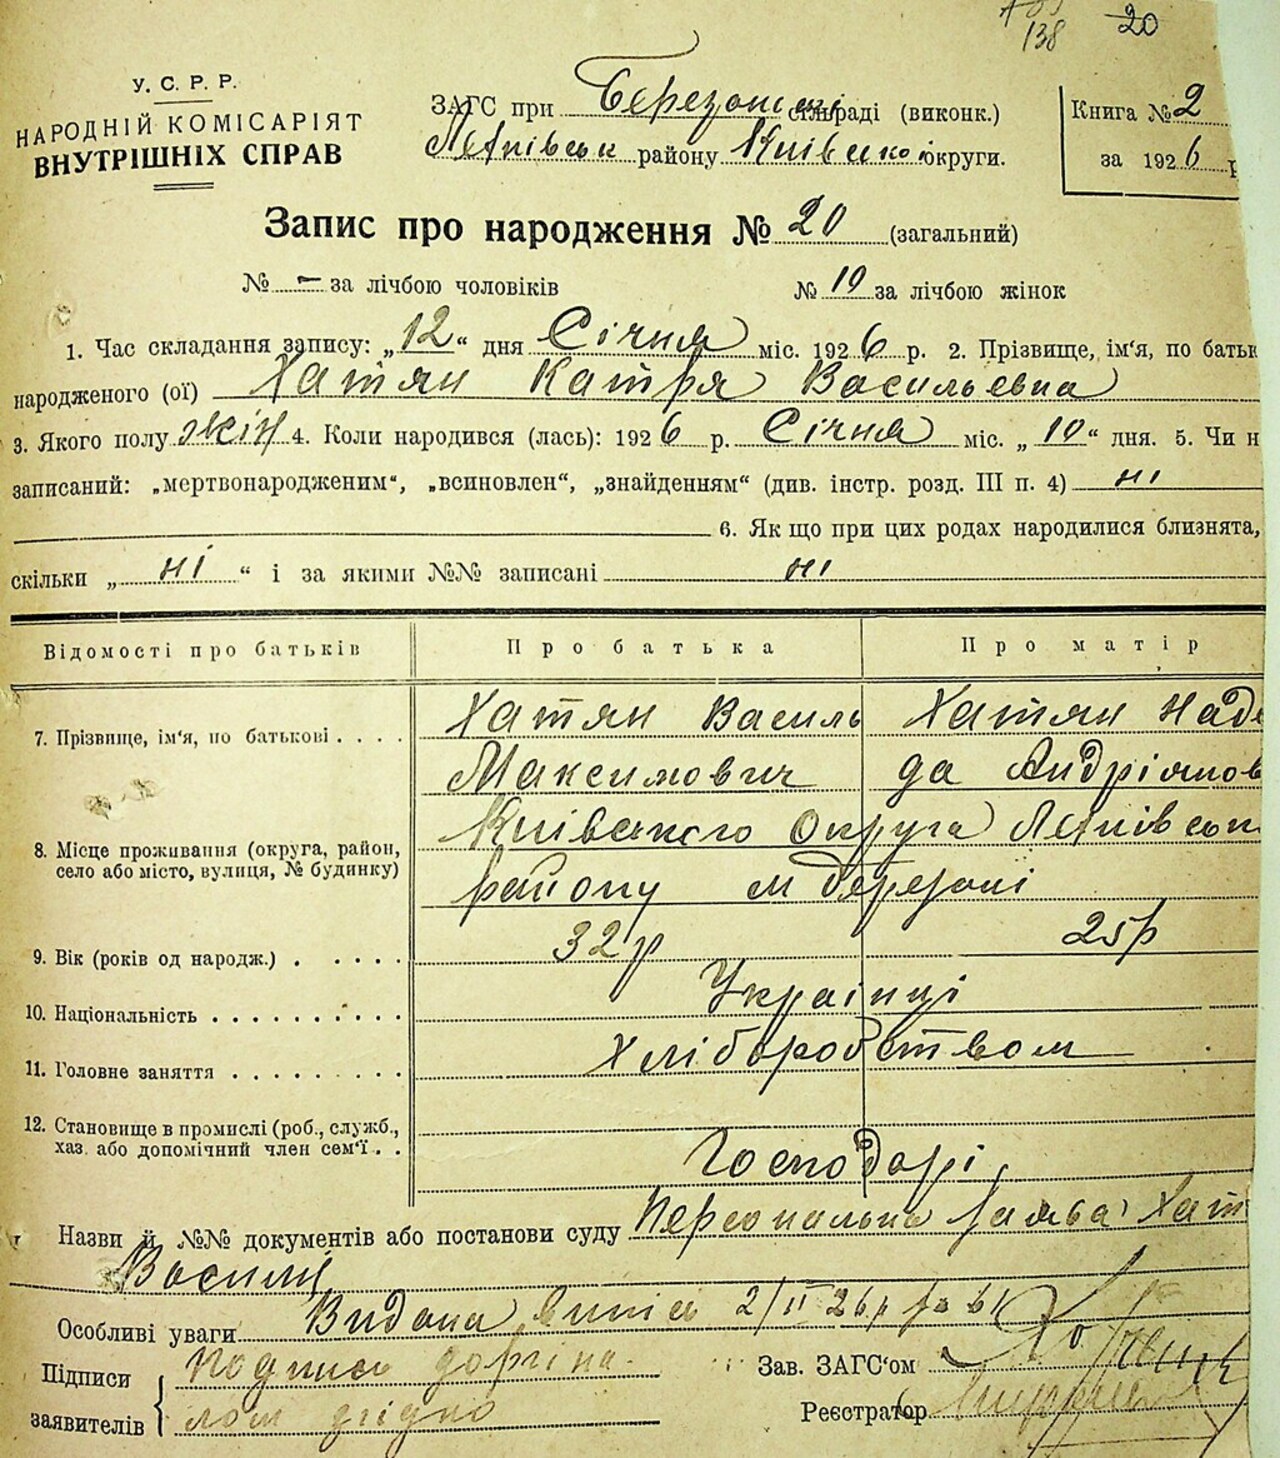 138 20
У. С. Р. Р.
НАРОДНІЙ КОМІСАРІЯТ
ВНУТРІШНІХ СПРАВ
ЗАГС при Березанські сільраді (виконк.)
Летківськ району Київської округи.
Книга № 2
за 1926 р
Запис про народження № 20 (загальний)
№ - за лічбою чоловіків № 10 за лічбою жінок
1. Час складання запису: „12“ дня Січня міс. 1926 р. 2. Прізвище, ім'я, по батьк
народженого (ої) Хатян Катря Васильевна
3. Якого полу жін 4. Коли народився (лась): 1926 р. Січня міс. „10“ дня. 5. Чи н
записаний: „мертвонародженим“, „всиновлен“, „знайденням“ (див. інстр. розд. III п. 4) ні
6. Як що при цих родах народилися близнята,
скільки „ні“ і за якими №№ записані ні
Відомості про батьків Про батька Про матір
7. Прізвище, ім'я, по батькові . . . . Хатян Василь Хатян Наде
Максимович да Андріянов
8. Місце проживання (округа, район, село або місто, вулиця, № будинку) Київського Округа
району м Березані
9. Вік (років од народж.) . . . . . 32 р 25 р
10. Національність . . . . . . . . . . Українці
11. Головне заняття . . . . . . . . . Хліборобством
12. Становище в промислі (роб., служб., хаз. або допомічний член сем'ї . . Господарі
Назви й №№ документів або постанови суду Персональна заява Хат
Василя
Особливі уваги Видана 2/II 26 р за
Підписи заявителів
Зав. ЗАГС'ом
Реєстратор